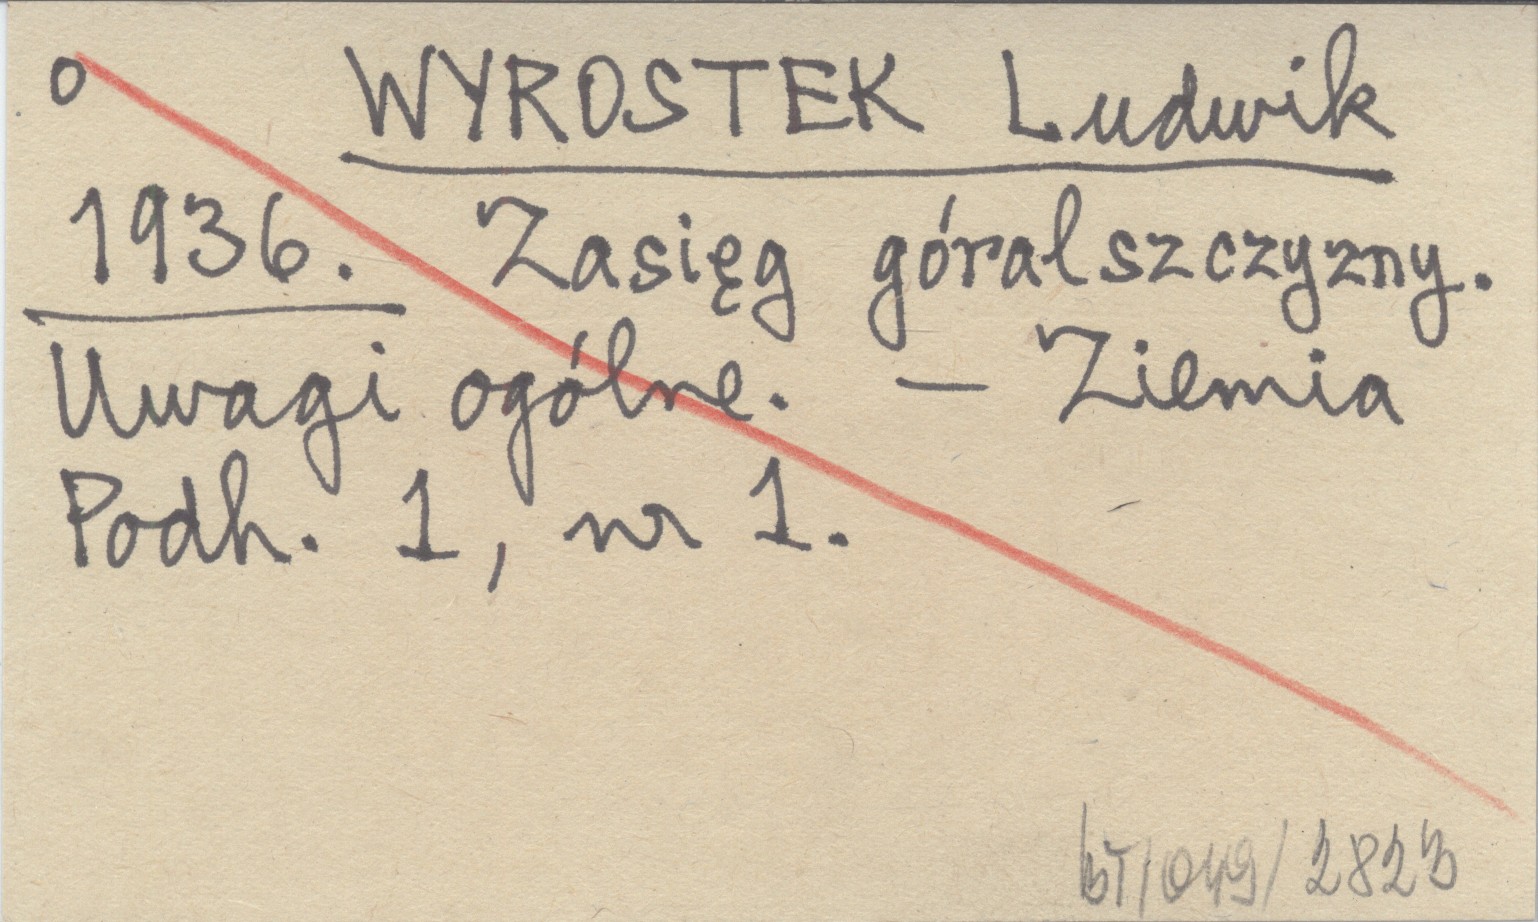 o WYROSTEK Ludwik
1936. Zasięg góralszczyzny.
Uwagi ogólne. — Ziemia
Podh. 1, nr 1.
bT/049/2823